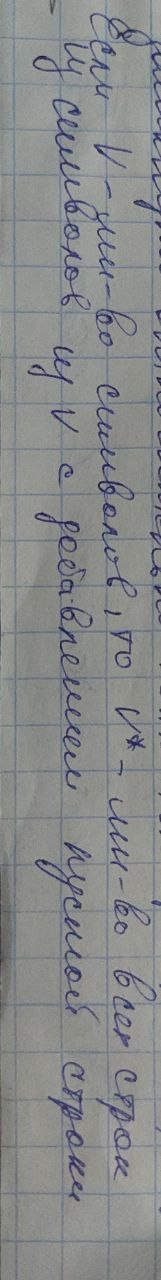 Если V - мн-во символов, то V* - мн-во всех строк
из символов из V с добавлением пустой строки